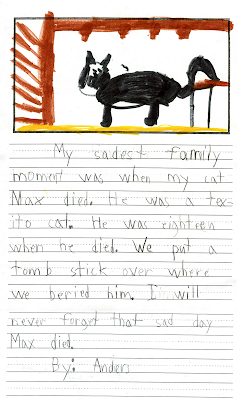 My sadest family
moment was when my cat
Max died. He was a tex-
ito cat. He was eighteen
when he died. We put a
tomb stick over where
we beried him. I will
never forget that sad day
Max died.
By: Anders